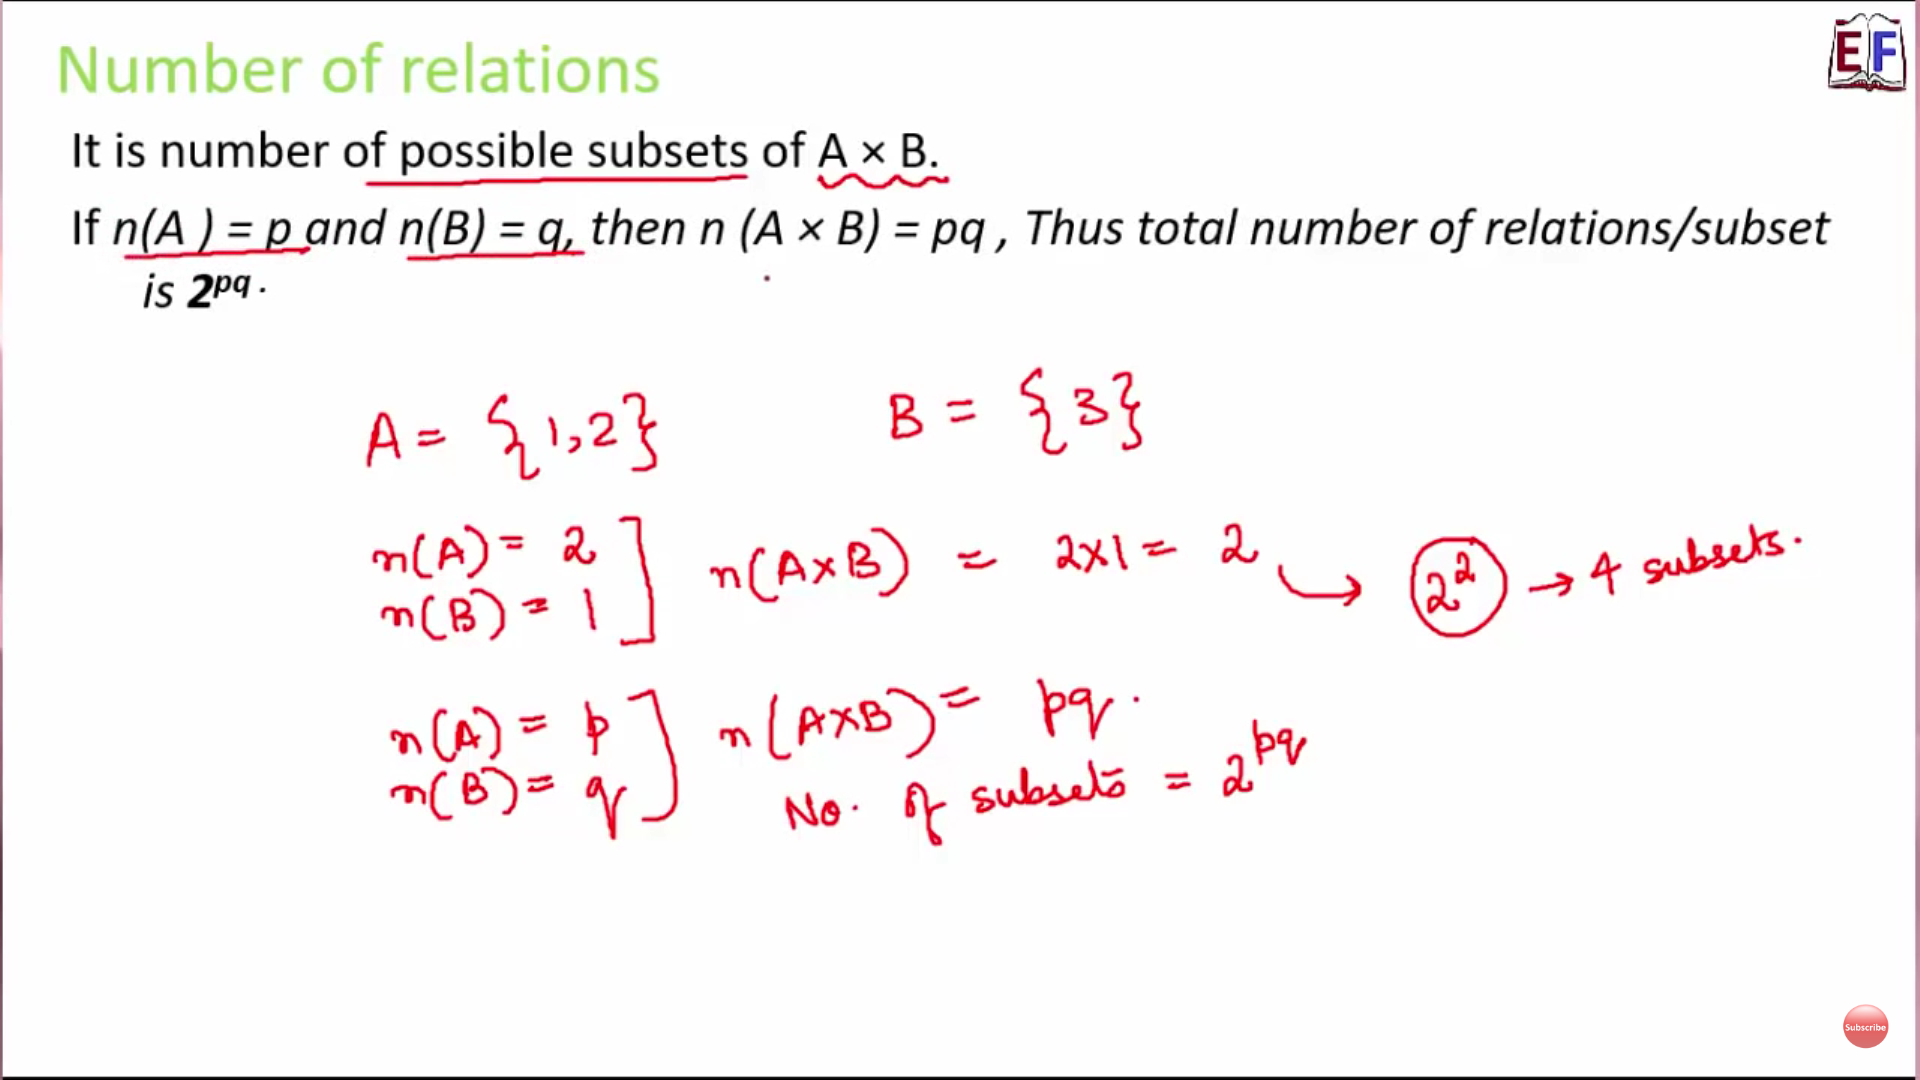 Number of relations
EF
It is number of possible subsets of A × B.
If n(A ) = p and n(B) = q, then n (A × B) = pq , Thus total number of relations/subset
is 2^pq .
A = {1,2} B = {3}
n(A) = 2
n(B) = 1
n(A×B) = 2×1 = 2 → 2^2 → 4 subsets.
n(A) = p
n(B) = q
n(A×B) = pq.
No. of subsets = 2^pq
Subscribe